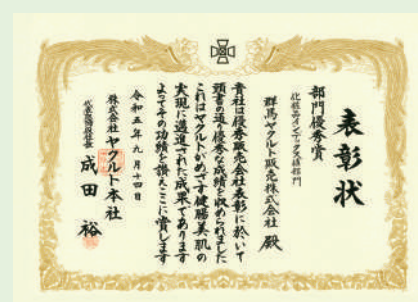 表彰状
部門優秀賞
化粧品インデックス績部門
群馬ヤクルト販売株式会社 殿
貴社は優秀販売会社表彰に於いて
頭書の通り優秀な成績を収められました
これはヤクルトがめざす健腸美肌の
実現に邁進された成果であります
よってその功績を讃えここに賞します
令和五年九月十四日
株式会社ヤクルト本社
代表取締役社長 成田 裕